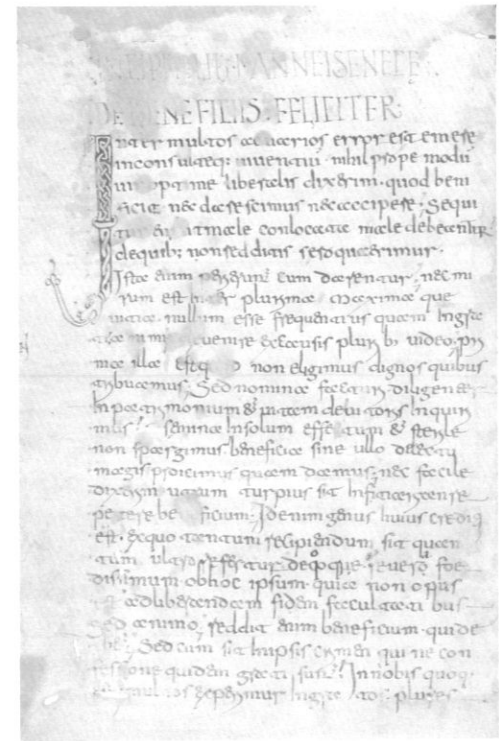 ANNEI SENECE
DE BENEFICIIS FELICITER
Inter multos ac uarios error est emere
inconsulteq: uiuentiū nihil prope modū
uir optime liberalis dixerim. quod bene
ficia nec dare scimus nec accipere. Sequi
tur ut male conlocata male debeantur
de quib; non redditis sero quaerimur.
Ista enim perierunt cum darentur. nec mi
rum est inter plurima maxima que
uitia nullum esse frequentius quam ingrate
animi euenire ex causis plurib; uideo. pri
ma illa est quod non eligimus dignos quibus
tribuamus. Sed nomina facturi diligenter
In patrimonium & uitam debitoris Inquiri
mus. semina Insolum effetum & sterile
non spargimus beneficia sine ullo delectu
magis proicimus quam damus; nec facile
dixerim utrum turpius sit Infitiari an re
petere beneficium. Id enim genus huius crediti
est. ex quo tantum recipiendum sit quan
tum ultro refertur. que uero foe
dissimum ob hoc ipsum. quia non opus
est ad liberandam fidem facultati bus
sed animo. reddit enim beneficium. qui de
bet. Sed cum sit In ipsis crimen qui ne con
fessione quidem grati sunt. In nobis quoq;
est multos experimur Ingratos. plures